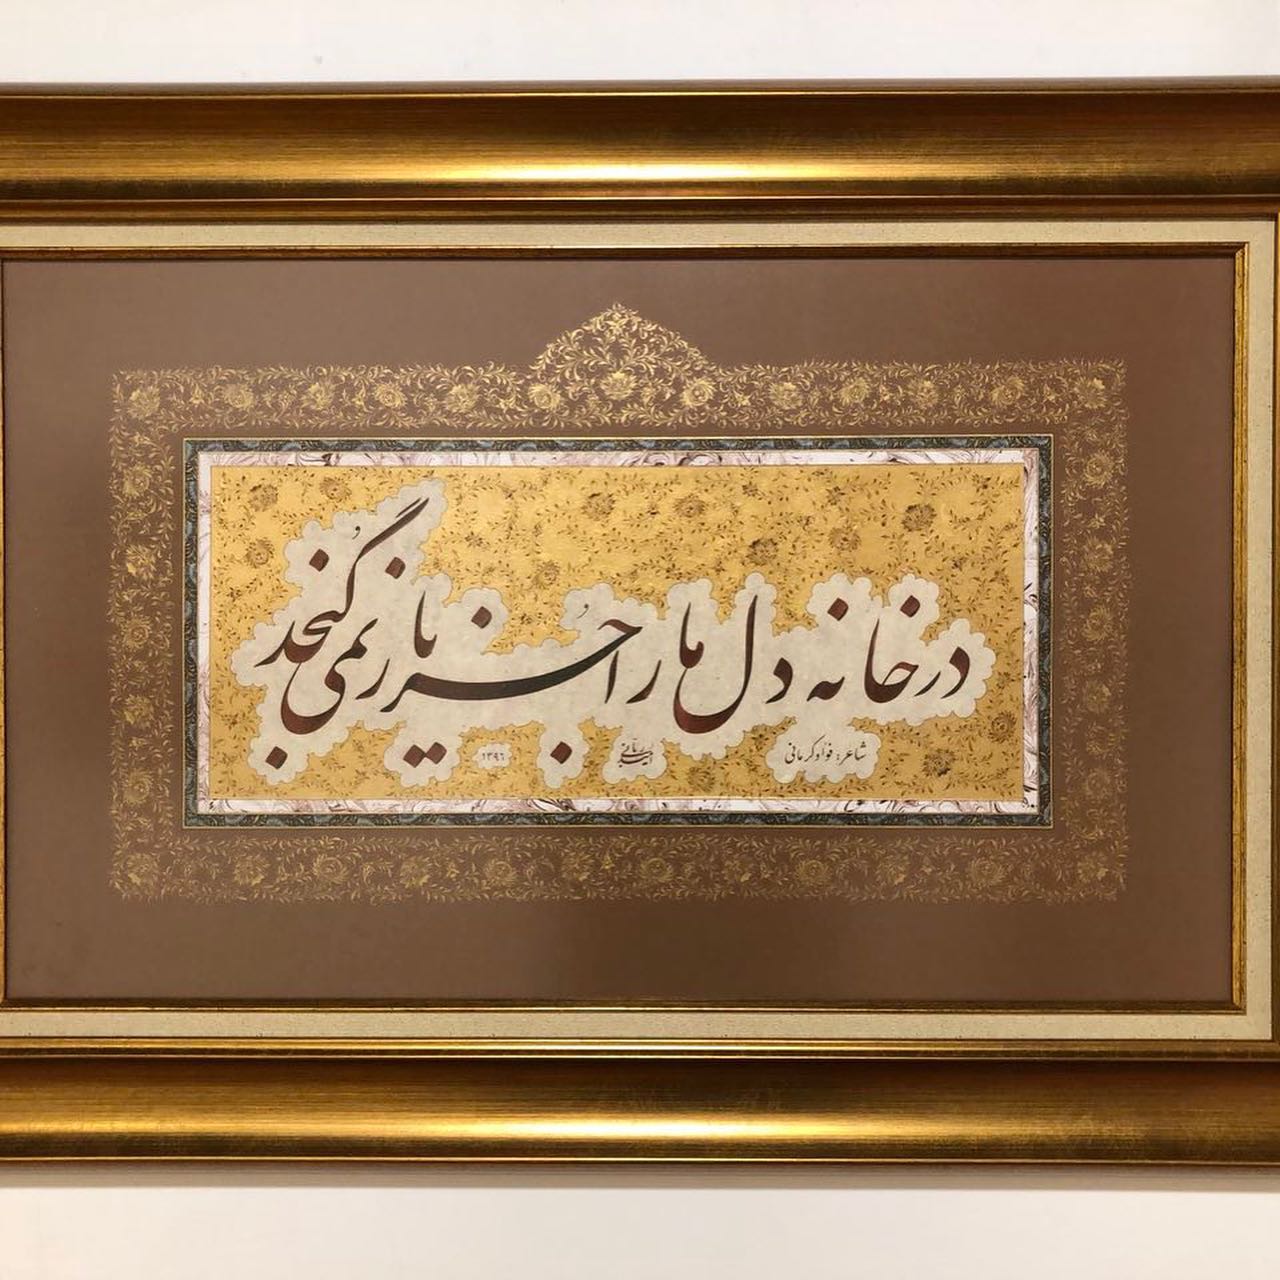 در خانه دل ما را جُز یار نمی گُنجد
شاعر: فواد کرمانی
۱۳۹۶